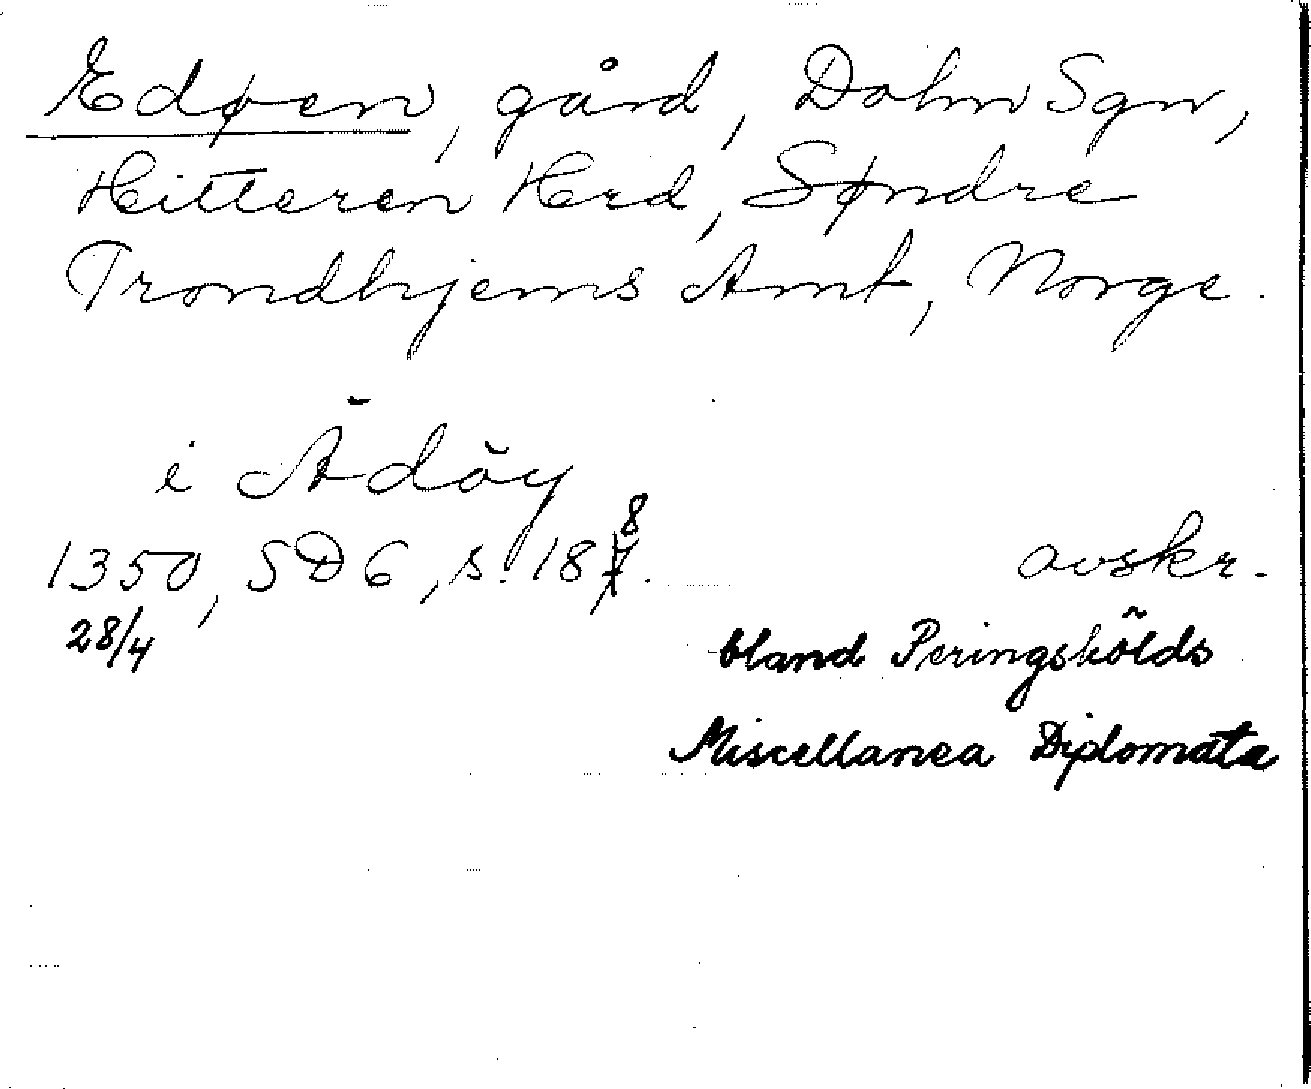 Edøen, gård, Dolm Sgn,
Hitteren Herd, Søndre
Trondhjems Amt, Norge.
i Ädöy
1350, SD 6, s. 188.
avskr.
28/4
bland Peringskölds
Miscellanea Diplomata